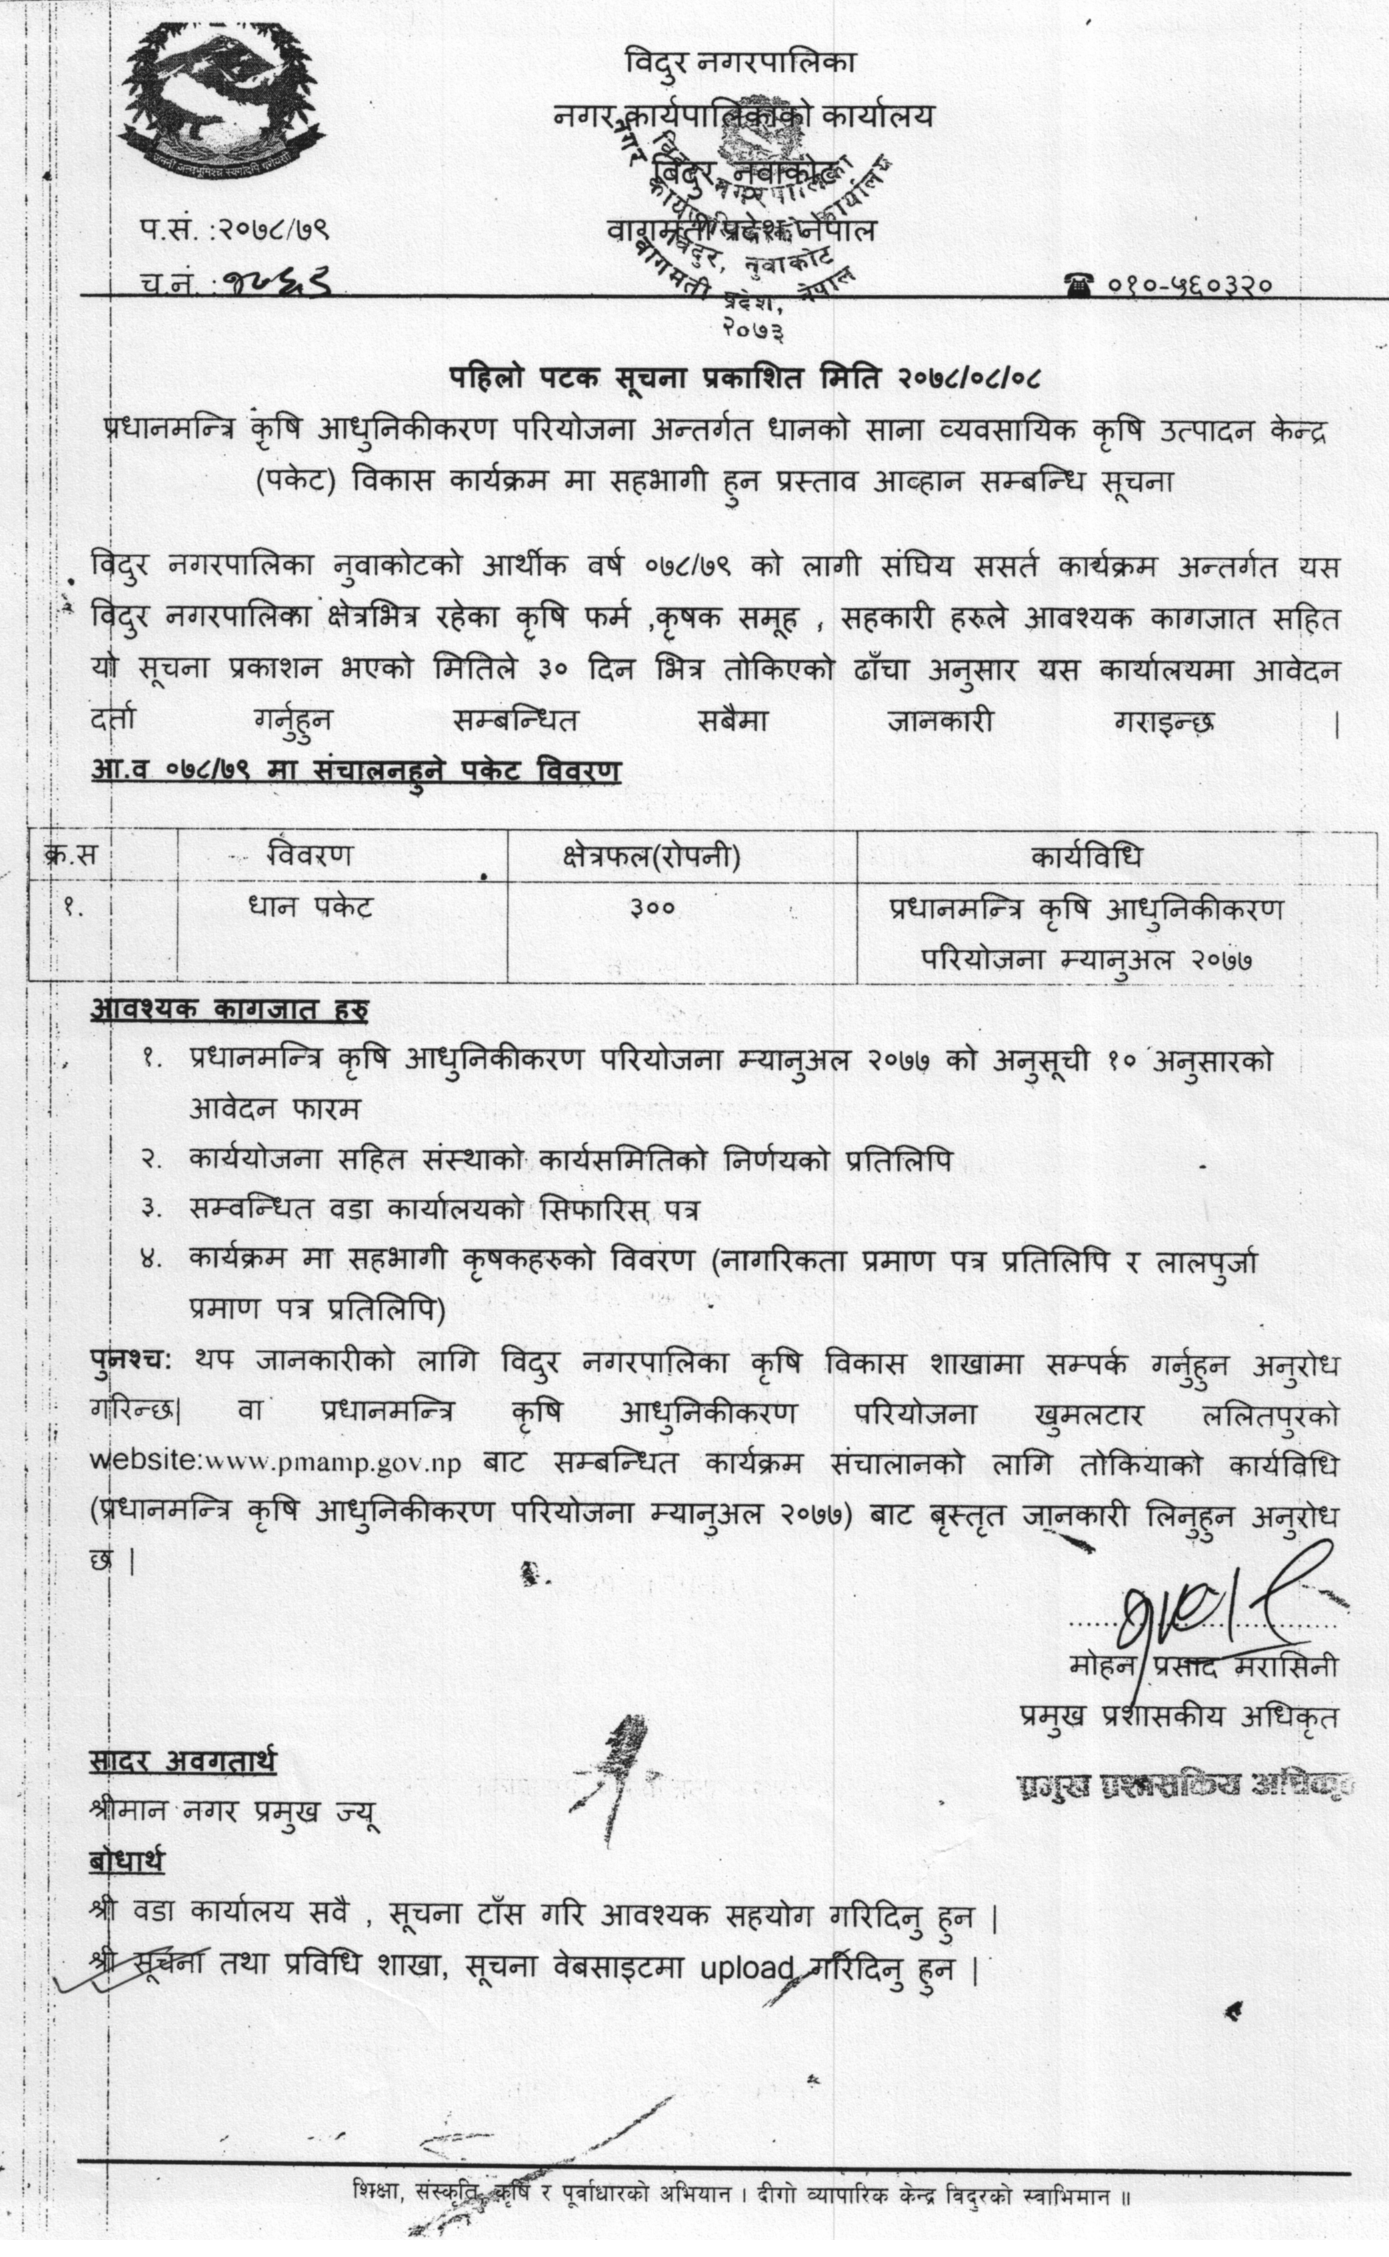 विदुर नगरपालिका
नगर कार्यपालिकाको कार्यालय
विदुर नुवाकोट
वागमती प्रदेश नेपाल
विदुर नगरपालिका
नगर कार्यपालिकाको कार्यालय
विदुर, नुवाकोट
वागमती प्रदेश, नेपाल
२०७३
प.सं. :२०७८/७९
च.नं. :
☎ ०१०-५६०३२०
पहिलो पटक सूचना प्रकाशित मिति २०७८/०८/०८
प्रधानमन्त्रि कृषि आधुनिकीकरण परियोजना अन्तर्गत धानको साना व्यवसायिक कृषि उत्पादन केन्द्र
(पकेट) विकास कार्यक्रम मा सहभागी हुन प्रस्ताव आव्हान सम्बन्धि सूचना
विदुर नगरपालिका नुवाकोटको आर्थीक वर्ष ०७८/७९ को लागी संघिय ससर्त कार्यक्रम अन्तर्गत यस
विदुर नगरपालिका क्षेत्रभित्र रहेका कृषि फर्म ,कृषक समूह , सहकारी हरुले आवश्यक कागजात सहित
यो सूचना प्रकाशन भएको मितिले ३० दिन भित्र तोकिएको ढाँचा अनुसार यस कार्यालयमा आवेदन
दर्ता गर्नुहुन सम्बन्धित सबैमा जानकारी गराइन्छ |
आ.व ०७८/७९ मा संचालनहुने पकेट विवरण
क्र.स विवरण क्षेत्रफल(रोपनी) कार्यविधि
१. धान पकेट ३०० प्रधानमन्त्रि कृषि आधुनिकीकरण
परियोजना म्यानुअल २०७७
आवश्यक कागजात हरु
१. प्रधानमन्त्रि कृषि आधुनिकीकरण परियोजना म्यानुअल २०७७ को अनुसूची १० अनुसारको
आवेदन फारम
२. कार्ययोजना सहित संस्थाको कार्यसमितिको निर्णयको प्रतिलिपि
३. सम्वन्धित वडा कार्यालयको सिफारिस पत्र
४. कार्यक्रम मा सहभागी कृषकहरुको विवरण (नागरिकता प्रमाण पत्र प्रतिलिपि र लालपुर्जा
प्रमाण पत्र प्रतिलिपि)
पुनश्च: थप जानकारीको लागि विदुर नगरपालिका कृषि विकास शाखामा सम्पर्क गर्नुहुन अनुरोध
गरिन्छ| वा प्रधानमन्त्रि कृषि आधुनिकीकरण परियोजना खुमलटार ललितपुरको
website:www.pmamp.gov.np बाट सम्बन्धित कार्यक्रम संचालानको लागि तोकियाको कार्यविधि
(प्रधानमन्त्रि कृषि आधुनिकीकरण परियोजना म्यानुअल २०७७) बाट बृस्तृत जानकारी लिनुहुन अनुरोध
छ |
मोहन प्रसाद मरासिनी
प्रमुख प्रशासकीय अधिकृत
प्रमुख प्रशासकिय अधिकृत
सादर अवगतार्थ
श्रीमान नगर प्रमुख ज्यू
बोधार्थ
श्री वडा कार्यालय सवै , सूचना टाँस गरि आवश्यक सहयोग गरिदिनु हुन |
श्री सूचना तथा प्रविधि शाखा, सूचना वेबसाइटमा upload गरिदिनु हुन |
शिक्षा, संस्कृति, कृषि र पूर्वाधारको अभियान । दीगो व्यापारिक केन्द्र विदुरको स्वाभिमान ॥